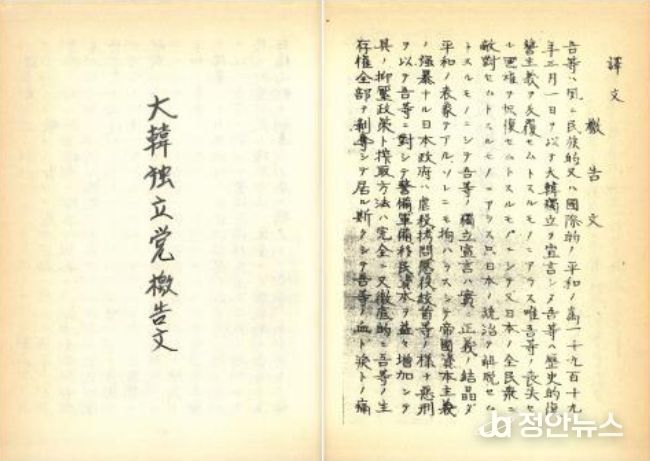 大韓独立党檄告文
譯文
檄告文
吾等ハ夙ニ民族的又ハ國際的ノ平和ノ爲一千九百十九
年三月一日ヲ以テ大韓獨立ヲ宣言シタ吾等ハ歴史的復
讐主義ヲ反復セムトスルモノニアラス唯吾等ノ喪失セ
ヲ恢復セムトスルモノニシテ又日本ノ全民衆ニ
敵對セムトスルモノニアラス只日本ノ統治ヲ解脱セム
トスルモノニシテ吾等ノ獨立宣言ハ實ニ正義ノ結晶ダ
平和ノ表象テアルソレニモ拘ハラスシテ帝國資本主義
ノ强暴ナル日本政府ハ虐殺拷問懲役絞首等ノ様々悪刑
ヲ以テ吾等ニ對シテ警備軍備移民資本ヲ益々増加シテ
其ノ抑壓政策ト搾取方法ハ完全ニ又徹底的ニ吾等ノ生
存権全部ヲ剥奪シテ居ル斯クシテ吾等ノ血ト涙トノ痛
정안뉴스